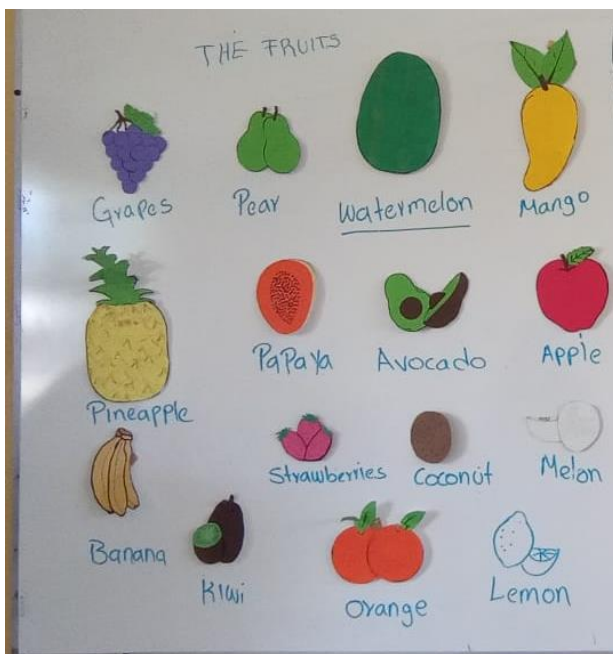 THE FRUITS
Grapes
Pear
Watermelon
Mango
Pineapple
PaPaYa
Avocado
Apple
Strawberries
Coconut
Melon
Banana
Kiwi
Orange
Lemon